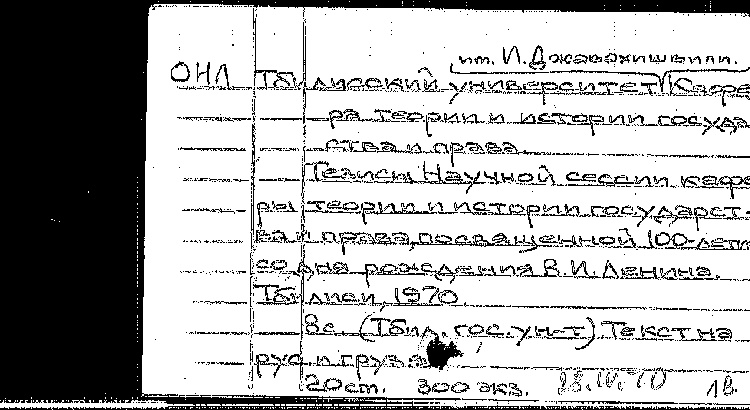 им. И. Джавахишвили.
ОНЛ Тбилисский университет Кафе
ра теории и истории госуда
ства и права.
Тезисы Научной сессии кафе
ры теории и истории государст-
ва и права, посвященной 100-лети
со дня рождения В.И. Ленина.
Тбилиси, 1970.
8с. (Тбил. гос. ун-т) Текст на
рус. и груз.
20 ст. 300 экз. 28.IV.70 1 в.